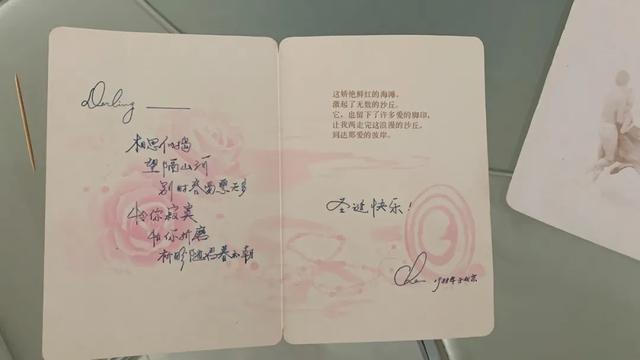 Darling ——
相思
望隔山河
别时
怜你寂寞
怕你折磨
这娇艳鲜红的海滩。
激起了无数的沙丘。
它，也留下了许多爱的脚印，
让我两走完这浪漫的沙丘。
到达那爱的彼岸。
圣诞快乐！
1988年于北京